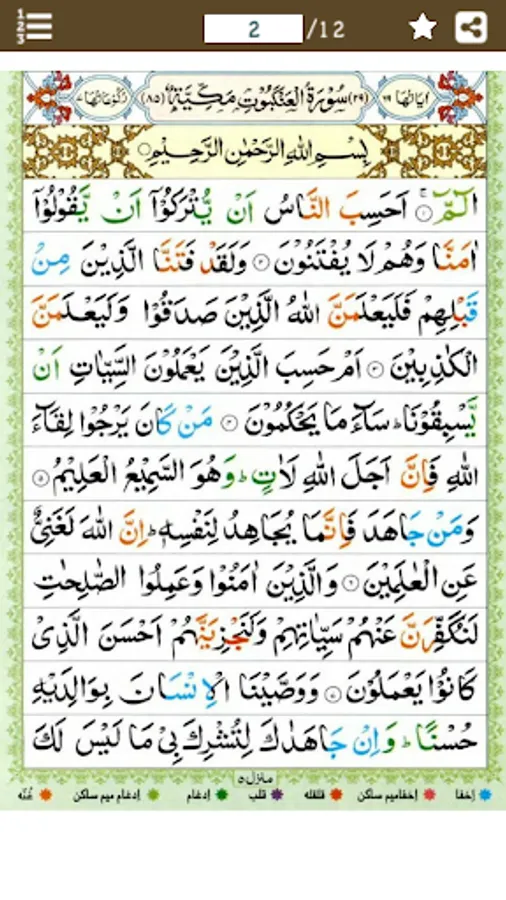 2 /12
اٰیاتها ٦٩ (٢٩) سُوْرَةُ الْعَنْكَبُوْتِ مَكِّيَّةٌ (٨٥) رُكُوْعَاتُهَا ٧
بِسْمِ اللّٰهِ الرَّحْمٰنِ الرَّحِيْمِ
الٓمّٓ ۚ۝١ اَحَسِبَ النَّاسُ اَنْ يُّتْرَكُوْٓا اَنْ يَّقُوْلُوْٓا
اٰمَنَّا وَهُمْ لَا يُفْتَنُوْنَ ۝٢ وَلَقَدْ فَتَنَّا الَّذِيْنَ مِنْ
قَبْلِهِمْ فَلَيَعْلَمَنَّ اللّٰهُ الَّذِيْنَ صَدَقُوْا وَلَيَعْلَمَنَّ
الْكٰذِبِيْنَ ۝٣ اَمْ حَسِبَ الَّذِيْنَ يَعْمَلُوْنَ السَّيِّاٰتِ اَنْ
يَّسْبِقُوْنَا ؕ سَآءَ مَا يَحْكُمُوْنَ ۝٤ مَنْ كَانَ يَرْجُوْا لِقَآءَ
اللّٰهِ فَاِنَّ اَجَلَ اللّٰهِ لَاٰتٍ ؕ وَهُوَ السَّمِيْعُ الْعَلِيْمُ ۝٥
وَمَنْ جَاهَدَ فَاِنَّمَا يُجَاهِدُ لِنَفْسِهٖ ؕ اِنَّ اللّٰهَ لَغَنِيٌّ
عَنِ الْعٰلَمِيْنَ ۝٦ وَالَّذِيْنَ اٰمَنُوْا وَعَمِلُوا الصّٰلِحٰتِ
لَنُكَفِّرَنَّ عَنْهُمْ سَيِّاٰتِهِمْ وَلَنَجْزِيَنَّهُمْ اَحْسَنَ الَّذِيْ
كَانُوْا يَعْمَلُوْنَ ۝٧ وَوَصَّيْنَا الْاِنْسَانَ بِوَالِدَيْهِ
حُسْنًا ؕ وَاِنْ جَاهَدٰكَ لِتُشْرِكَ بِيْ مَا لَيْسَ لَكَ
منزل ٥
اِخفا اِخفامیم ساکن قلقله قلب اِدغام اِدغام میم ساکن غُنّه